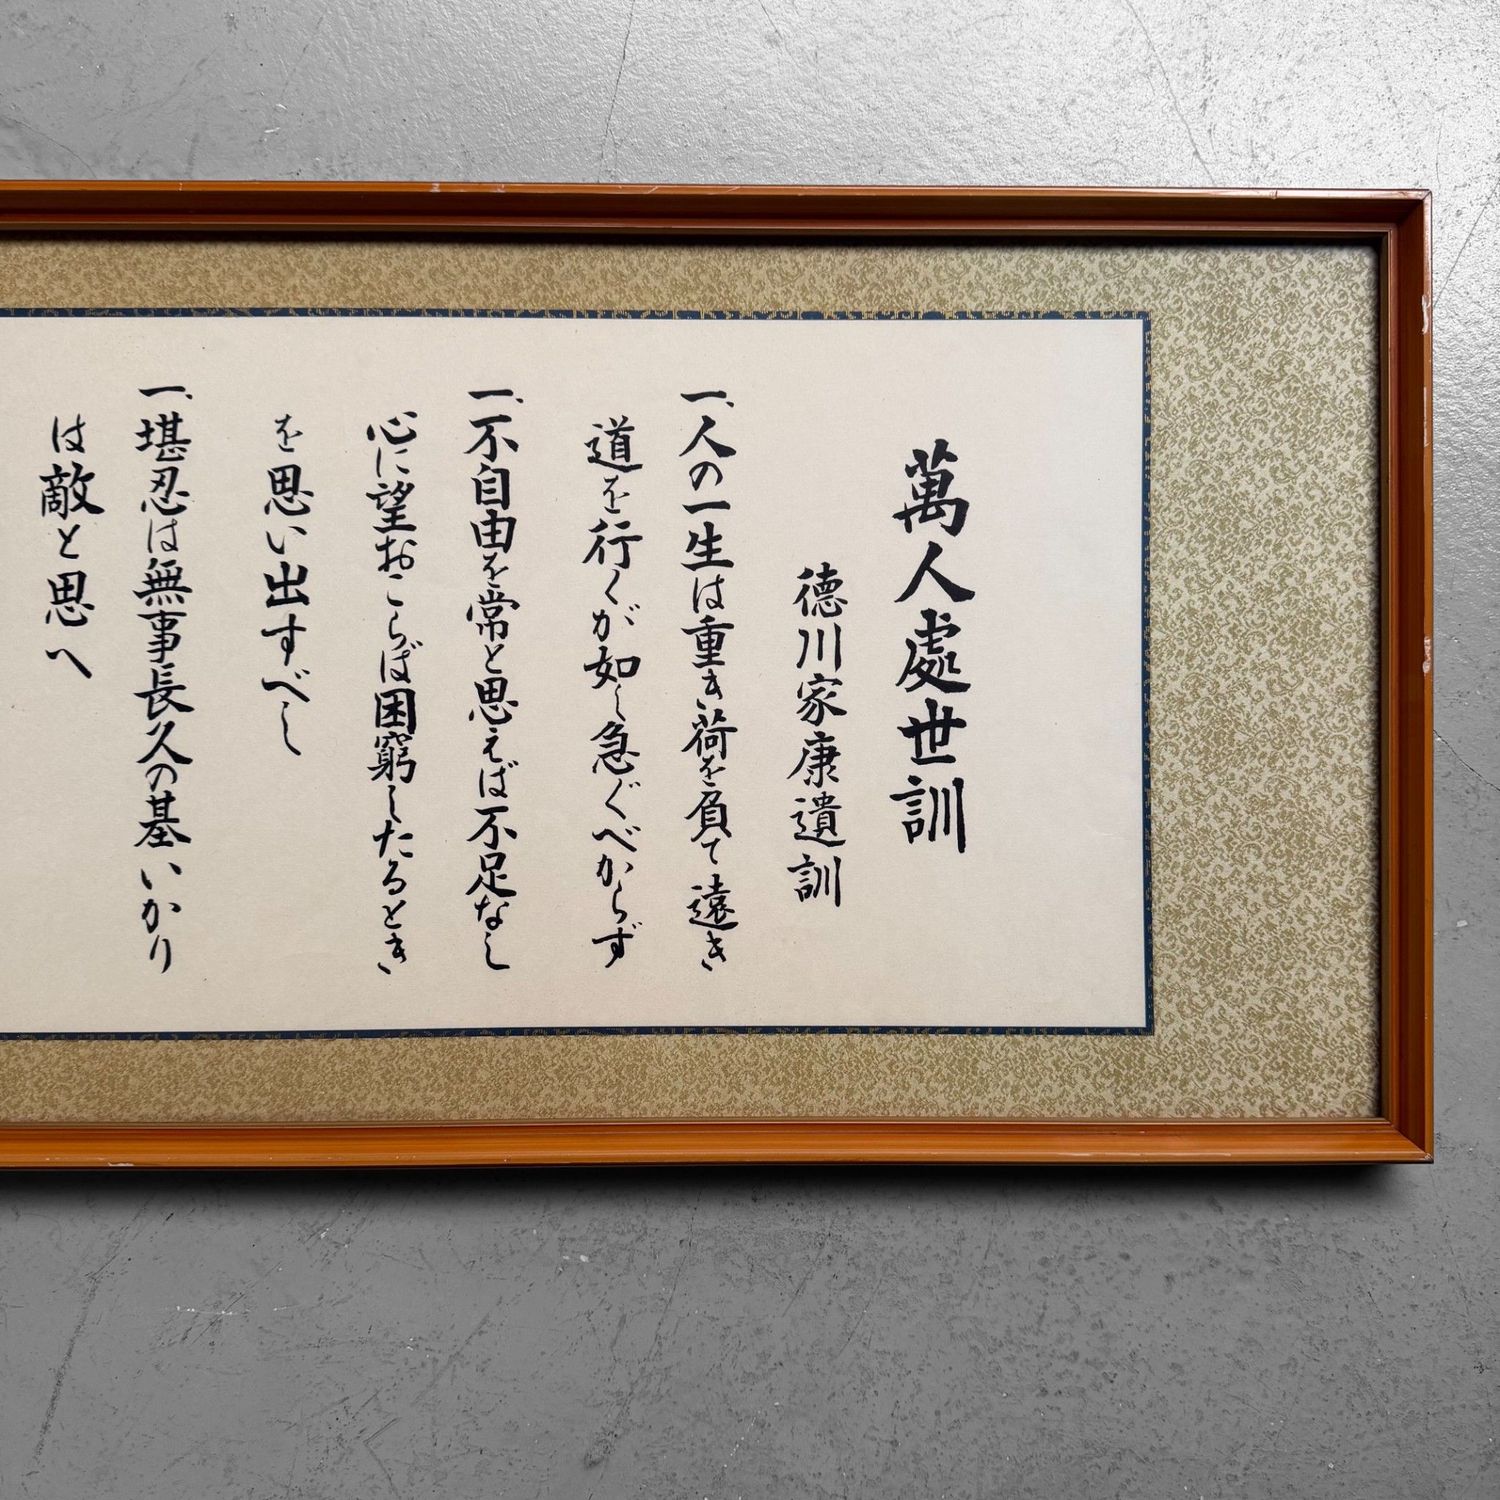 萬人處世訓
德川家康遺訓
一、人の一生は重き荷を負て遠き
道を行くが如し急ぐべからず
一、不自由を常と思えば不足なし
心に望おこらば困窮したるとき
を思い出すべし
一、堪忍は無事長久の基いかり
は敵と思へ